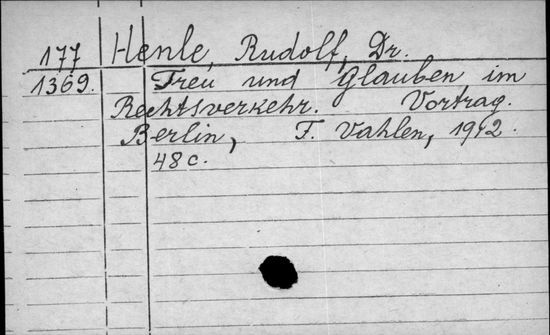 177 Henle, Rudolf, Dr.
1369. Treu und Glauben im
Rechtsverkehr. Vortrag.
Berlin, F. Vahlen, 1912.
48 c.